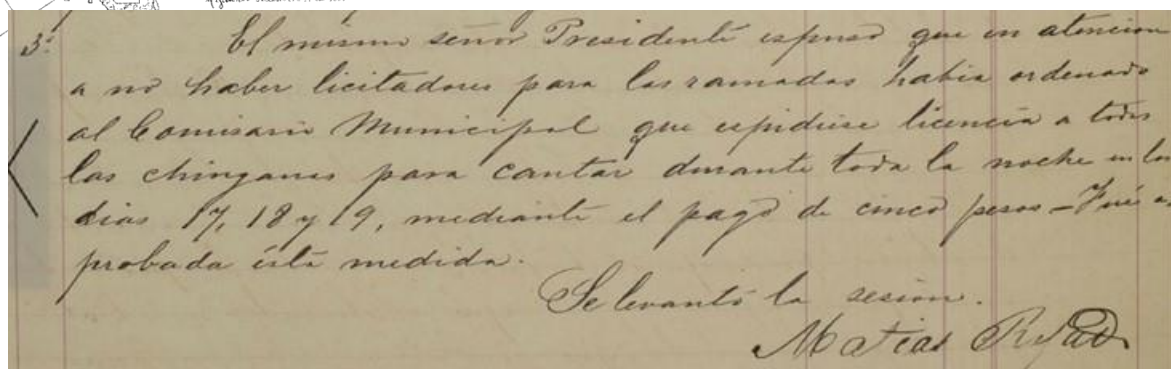 3º El mismo señor Presidente espuso que en atencion
a no haber licitadores para las ramadas habia ordenado
al Comisario Municipal que espidiese licencia a todas
las chinganas para cantar durante toda la noche en los
dias 17, 18 y 19, mediante el pago de cinco pesos - Fué a-
probada ésta medida.
Se levantó la sesion.
Matias